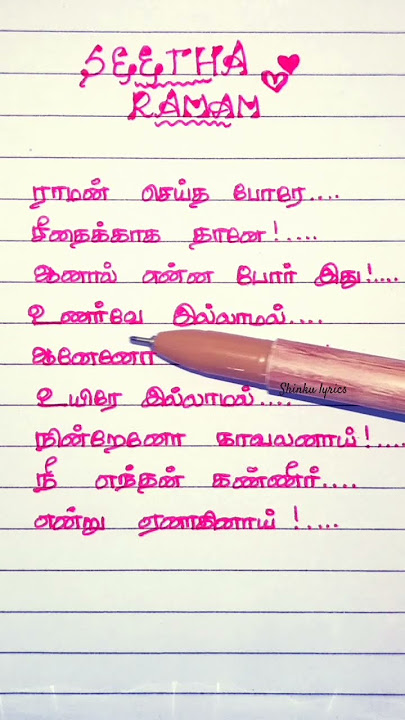 SEETHA
RAMAM
ராமன் செய்த போரே....
சீதைக்காக தானே!....
ஆனால் என்ன போர் இது!....
உணர்வே இல்லாமல்....
ஆனேனோ
Shinku lyrics
உயிரே இல்லாமல்....
நின்றேனோ காவலனாய்!....
நீ எந்தன் கண்ணீர்....
என்று ஏனாகினாய் !....